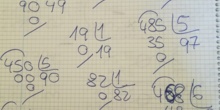 90 49
0
19 1
0 19
485 5
35 97
0
450 5
00 90
0
82 1
0 82
468 6